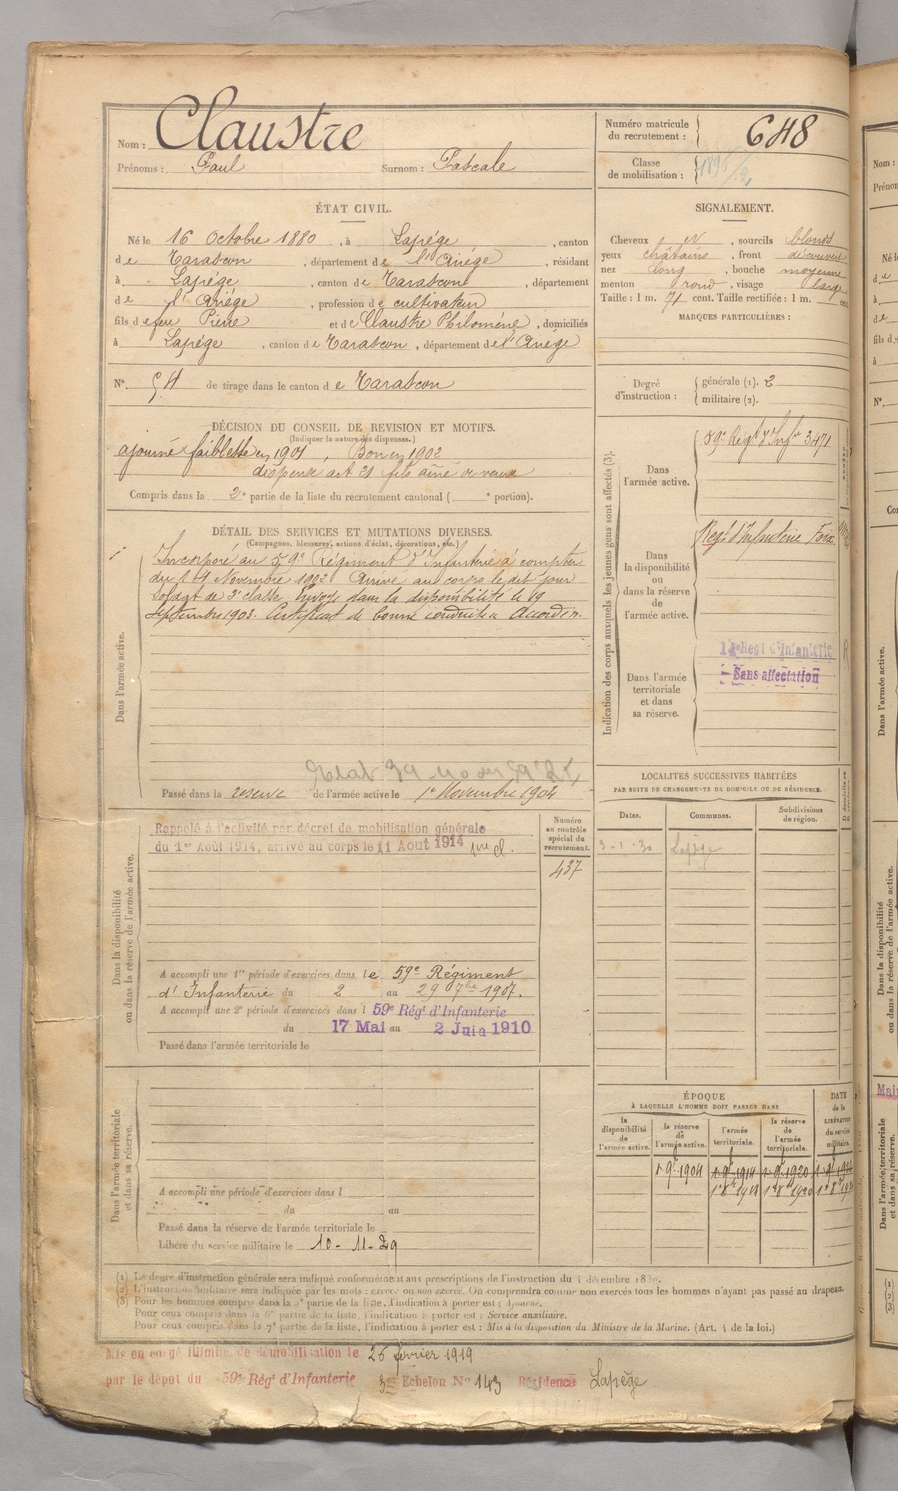 Nom : Claustre
Prénoms : Paul Surnom : Pascale
Numéro matricule
du recrutement : 648
Classe
de mobilisation :
ÉTAT CIVIL.
Né le 16 Octobre 1880, à Lapége, canton
de Tarascon, département de l'Ariége, résidant
à Lapége, canton de Tarascon, département
de l'Ariége, profession de cultivateur
fils de feu Pierre et de Claustre Philoméne, domiciliés
à Lapége, canton de Tarascon, département de l'Ariege
N° 54 de tirage dans le canton de Tarascon
SIGNALEMENT.
Cheveux N, sourcils blonds
yeux châtains, front découvert
nez long, bouche moyenne
menton rond, visage large
Taille : 1 m. 71 cent. Taille rectifiée : 1 m. cent.
MARQUES PARTICULIÈRES :
Degré
d'instruction :
générale (1). 2
militaire (2).
DÉCISION DU CONSEIL DE REVISION ET MOTIFS.
(Indiquer la nature des dispenses.)
ajourné faiblesse en 1901, Bon en 1902
dispensé art 21 fils aîné de veuve
Compris dans la 2e partie de la liste du recrutement cantonal ( e portion).
DÉTAIL DES SERVICES ET MUTATIONS DIVERSES.
(Campagnes, blessures, actions d'éclat, décorations, etc.)
Dans l'armée active.
Incorporé au 59e Régiment d'Infanterie à compter
du 14 Novembre 1902. Arrivé au corps le dit jour
Soldat de 2e classe. Envoyé dans la disponibilité le 19
Septembre 1903. Certificat de bonne conduite Accordé.
Passé dans la reserve de l'armée active le 1er Novembre 1904
Indication des corps auxquels les jeunes gens sont affectés (3).
Dans
l'armée active.
59e Régt d'Infie 3471
Dans
la disponibilité
ou
dans la réserve
de
l'armée active.
Regt d'Infanterie Foix
Dans l'armée
territoriale
et dans
sa réserve.
Regt d'Infanterie
Sans affectation
LOCALITÉS SUCCESSIVES HABITÉES
PAR SUITE DE CHANGEMENTS DE DOMICILE OU DE RÉSIDENCE.
Dates. Communes. Subdivisions
de région.
3-1-30 Lapège
Dans la disponibilité
ou dans la réserve de l'armée active.
Numéro
au contrôle
spécial du
recrutement.
437
Rappelé à l'activité par décret de mobilisation générale
du 1er Août 1914, arrivé au corps le 11 Aout 1914
A accompli une 1re période d'exercices dans le 59e Régiment
d'Infanterie du 2 au 29 7bre 1907.
A accompli une 2e période d'exercices dans l 59e Régt d'Infanterie
du 17 Mai au 2 Juin 1910
Passé dans l'armée territoriale le
Dans l'armée territoriale
et dans sa réserve.
A accompli une période d'exercices dans l
du au
Passé dans la réserve de l'armée territoriale le
Libéré du service militaire le 10-11-29
ÉPOQUE
À LAQUELLE L'HOMME DOIT PASSER DANS
la
disponibilité
de
l'armée active.
la réserve
de
l'armée active.
l'armée
territoriale.
la réserve
de
l'armée
territoriale.
DATE
de la
LIBÉRATION
du service
militaire.
1 9bre 1904 1 9bre 1914 1 9bre 1920
(1) Le degré d'instruction générale sera indiqué conformément aux prescriptions de l'instruction du 4 décembre 1889.
(2) L'instruction militaire sera indiquée par les mots : exercé ou non exercé. On comprendra comme non exercés tous les hommes n'ayant pas passé au drapeau.
(3) Pour les hommes compris dans la 5e partie de la liste, l'indication à porter est : Ajourné.
Pour ceux compris dans la 6e partie de la liste, l'indication à porter est : Service auxiliaire.
Pour ceux compris dans la 7e partie de la liste, l'indication à porter est : Mis à la disposition du Ministre de la Marine. (Art. 4 de la loi.)
Mis en congé illimité de démobilisation le 26 février 1919
par le dépôt du 59e Régt d'Infanterie 3me Echelon N° 143 Résidence Lapège